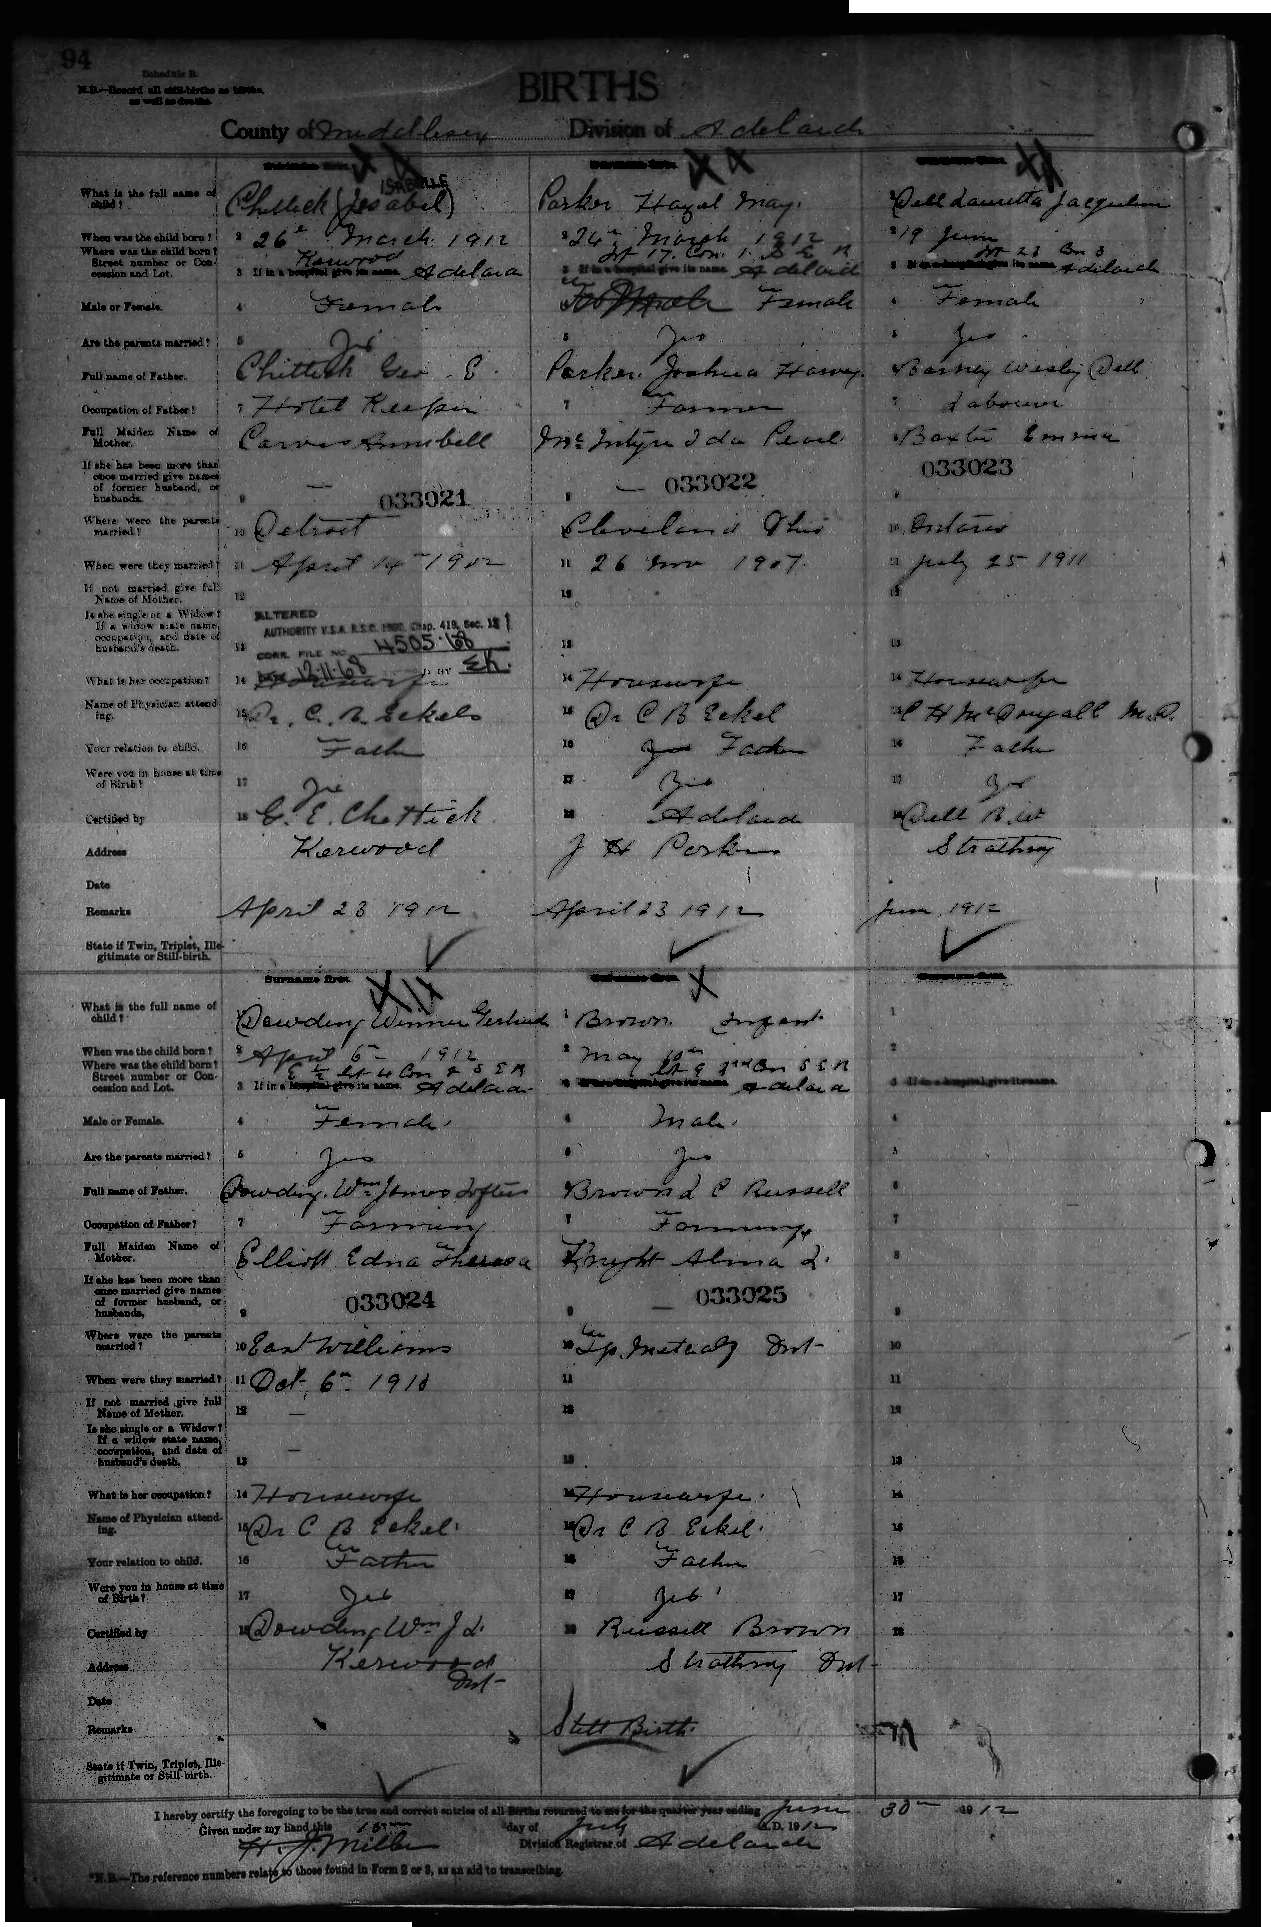 94
Schedule B.
N.B.—Record all still-births as births,
as well as deaths.
BIRTHS
County of Middlesex Division of Adelaide
What is the full name of child? Chittick (Jesabel) ISABELLE Parker Hazel May. Dell Lauretta Jacqueline
When was the child born? 2 26th March 1912 2 24th March 1912 2 19 June
Kerwood Lt 17. Con. 1. S E R Lt 23 Con 3
Where was the child born? Street number or Concession and Lot. 3 If in a hospital give its name. Adelaid 3 If in a hospital give its name. Adelaid 3 If in a hospital give its name. Adelaide
Male or Female. 4 Female Female 4 Female
Are the parents married? 5 Yes 5 Yes 5 Yes
Full name of Father. Chittick Geo. E. Parker. Joshua Harvey. Barney Wesley Dell
Occupation of Father? 7 Hotel Keeper 7 Farmer 7 Labourer
Full Maiden Name of Mother. Annibell McIntyre Ida Pearl Baxter Emma
If she has been more than once married give names of former husband, or husbands. 9 — 033021 9 — 033022 9 033023
Where were the parents married? 10 Detroit 10 Cleveland Ohio 10 Ontario
When were they married? 11 April 14th 1902 11 26 Nov 1907. 11 July 25 1911
If not married give full Name of Mother. 12 12 12
Is she single or a Widow? If a widow state name, occupation, and date of husband's death. 13 13 13
ALTERED
AUTHORITY V.S.A. R.S.O. 1960, Chap. 419, Sec.
CORR. FILE NO. 4505-68
DATE 12-11-68 BY EK.
What is her occupation? 14 Housewife 14 Housewife 14 Housewife
Name of Physician attending. 15 Dr. C. B. Eckels 15 Dr C B Eckel 15 C H McDougall M.D.
Your relation to child. 16 Father 16 Father 16 Father
Were you in house at time of Birth? 17 Yes 17 Yes 17 Yes
Certified by 18 G. E. Chittick 18 Adelaid 18 Dell B. W
Address Kerwood J H Parker Strathroy
Date
Remarks April 23 1912 April 23 1912 June 1912
State if Twin, Triplet, Illegitimate or Still-birth.
Surname first. Surname first. Surname first.
What is the full name of child? Dowding Gertrude 1 Brown Infant 1
When was the child born? 2 April 6th 1912 2 May 10th 2
E ½ lot 4 Con 2 S E R lt 9 3rd Con S E R
Where was the child born? Street number or Concession and Lot. 3 If in a hospital give its name. Adelaid 3 If in a hospital give its name. Adelaid 3 If in a hospital, give its name.
Male or Female. 4 Female. 4 Male. 4
Are the parents married? 5 Yes 5 Yes 5
Full name of Father. Dowding. Wm James Loftus Brown L C Russell 6
Occupation of Father? 7 Farming 7 Farming 7
Full Maiden Name of Mother. Elliott Edna Theresa Knight Alma L. 8
If she has been more than once married give names of former husband, or husbands. 9 033024 9 — 033025 9
Where were the parents married? 10 East Williams 10 Tp. Metcalf Ont 10
When were they married? 11 Oct, 6th 1910 11 11
If not married give full Name of Mother. 12 — 12 12
Is she single or a Widow? If a widow state name, occupation, and date of husband's death. 13 — 13 13
What is her occupation? 14 Housewife 14 Housewife. 14
Name of Physician attending. 15 Dr C B Eckel. 15 Dr C B Eckel. 15
Your relation to child. 16 Father 16 Father 16
Were you in house at time of Birth? 17 Yes 17 Yes 17
Certified by 18 Dowding Wm J L. 18 Russell Brown 18
Address Kerwood Ont Strathroy Ont
Date
Remarks Still Birth.
State if Twin, Triplet, Illegitimate or Still-birth.
I hereby certify the foregoing to be the true and correct entries of all Births returned to me for the quarter year ending June 30th 1912
Given under my hand this 15th day of July A.D. 1912
H. J. Miller Division Registrar of Adelaide
*N.B.—The reference numbers relate to those found in Form 2 or 3, as an aid to transcribing.